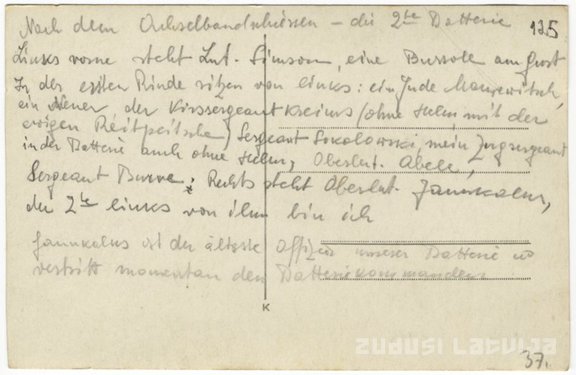 Nach dem Achselbandschiessen – die 2te Batterie
125
Links vorne steht Lnt. Simson, eine Bussole am Brust
In der ersten Runde sitzen von links: ein Jude Mazewitsch,
ein Diener der Kirssergeant Kreims (ohne Helm mit der
ewigen Reitpeitsche) Sergeant Sokolowski, mein Zugsergeant
in der Batterie auch ohne Helm, Oberlnt. Abele,
Sergeant Burre. Rechts steht Oberlnt. Jaunkalns,
der 2te links von ihm bin ich
Jaunkalns ist der älteste Offizier unserer Batterie u
vertritt momentan den Batteriekommandeur
K
ZUDUSI LATVIJA
37.